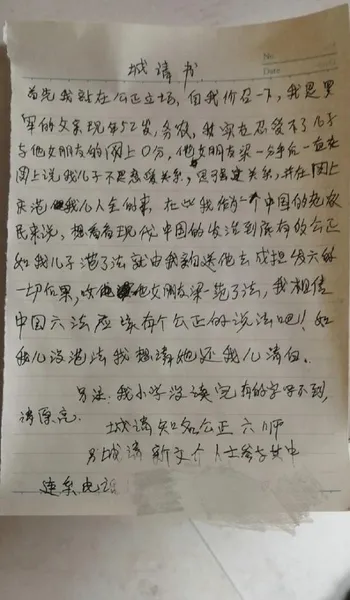 No
Date
城请书
首先我站在公正立场，自我介召一下，我是黑
军的父亲现年52岁，务农，我实在忍受不了儿子
与他女朋友的网上0分，他女朋友梁一
网上说我儿子不是想缓关系，思可是关系，并在网上
来港我儿人生的事，在此我作为一个中国的
民来说，想看看现代中国的发治到底有没公正
如我儿子范了法就由我亲送他去成担发六的
一切后果，他女朋友梁范了法，我相信
中国六法应该有个公正的说法吧！如
我儿没范法我想请她还我儿清白。
另法：我小学没读完有的字写不到，
请原凉
城请知名公正六师
另城请新文个人士参于其中
连系电话